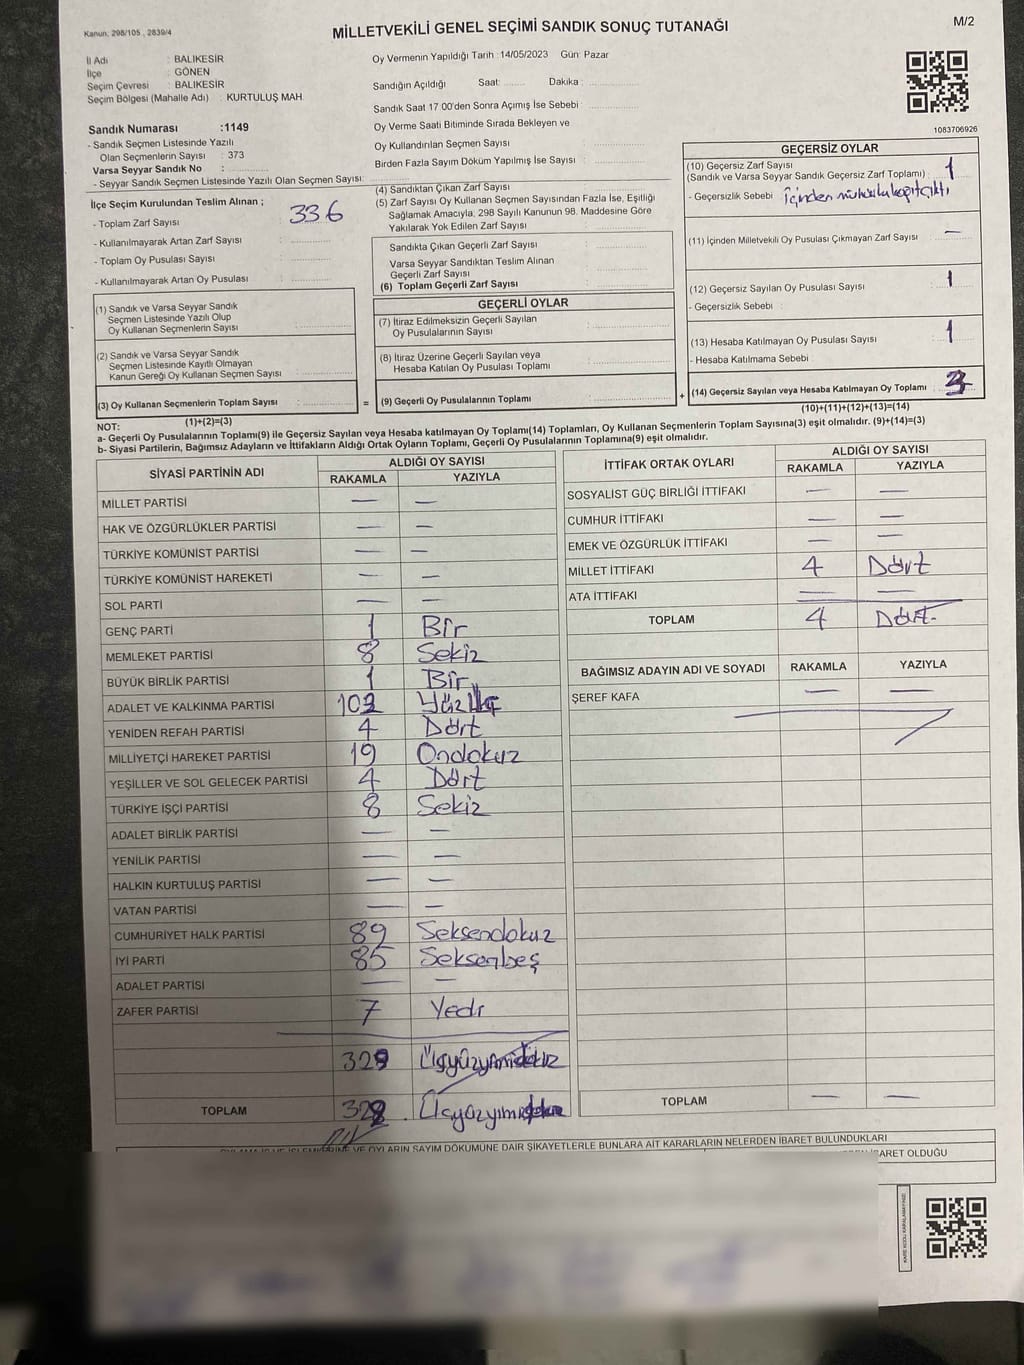 Kanun, 298/105 , 2839/4
MİLLETVEKİLİ GENEL SEÇİMİ SANDIK SONUÇ TUTANAĞI
M/2
İl Adı : BALIKESİR
İlçe : GÖNEN
Seçim Çevresi : BALIKESİR
Seçim Bölgesi (Mahalle Adı) : KURTULUŞ MAH.
Sandık Numarası :1149
- Sandık Seçmen Listesinde Yazılı
Olan Seçmenlerin Sayısı : 373
Varsa Seyyar Sandık No :
- Seyyar Sandık Seçmen Listesinde Yazılı Olan Seçmen Sayısı:
İlçe Seçim Kurulundan Teslim Alınan ;
- Toplam Zarf Sayısı : 336
- Kullanılmayarak Artan Zarf Sayısı :
- Toplam Oy Pusulası Sayısı :
- Kullanılmayarak Artan Oy Pusulası :
(1) Sandık ve Varsa Seyyar Sandık
Seçmen Listesinde Yazılı Olup
Oy Kullanan Seçmenlerin Sayısı :
(2) Sandık ve Varsa Seyyar Sandık
Seçmen Listesinde Kayıtlı Olmayan
Kanun Gereği Oy Kullanan Seçmen Sayısı :
(3) Oy Kullanan Seçmenlerin Toplam Sayısı :
(1)+(2)=(3)
Oy Vermenin Yapıldığı Tarih :14/05/2023 Gün: Pazar
Sandığın Açıldığı Saat: Dakika :
Sandık Saat 17 00'den Sonra Açımış İse Sebebi :
Oy Verme Saati Bitiminde Sırada Bekleyen ve
Oy Kullandırılan Seçmen Sayısı :
Birden Fazla Sayım Döküm Yapılmış İse Sayısı :
(4) Sandıktan Çıkan Zarf Sayısı :
(5) Zarf Sayısı Oy Kullanan Seçmen Sayısından Fazla İse, Eşitliği
Sağlamak Amacıyla, 298 Sayılı Kanunun 98. Maddesine Göre
Yakılarak Yok Edilen Zarf Sayısı :
Sandıkta Çıkan Geçerli Zarf Sayısı :
Varsa Seyyar Sandıktan Teslim Alınan
Geçerli Zarf Sayısı :
(6) Toplam Geçerli Zarf Sayısı :
GEÇERLİ OYLAR
(7) İtiraz Edilmeksizin Geçerli Sayılan
Oy Pusulalarının Sayısı :
(8) İtiraz Üzerine Geçerli Sayılan veya
Hesaba Katılan Oy Pusulası Toplamı :
= (9) Geçerli Oy Pusulalarının Toplamı : +
1083706926
GEÇERSİZ OYLAR
(10) Geçersiz Zarf Sayısı
(Sandık ve Varsa Seyyar Sandık Geçersiz Zarf Toplamı) : 1
- Geçersizlik Sebebi : İçinden
(11) İçinden Milletvekili Oy Pusulası Çıkmayan Zarf Sayısı : —
(12) Geçersiz Sayılan Oy Pusulası Sayısı : 1
- Geçersizlik Sebebi :
(13) Hesaba Katılmayan Oy Pusulası Sayısı : 1
- Hesaba Katılmama Sebebi :
(14) Geçersiz Sayılan veya Hesaba Katılmayan Oy Toplamı : 3
(10)+(11)+(12)+(13)=(14)
NOT:
a- Geçerli Oy Pusulalarının Toplamı(9) ile Geçersiz Sayılan veya Hesaba katılmayan Oy Toplamı(14) Toplamları, Oy Kullanan Seçmenlerin Toplam Sayısına(3) eşit olmalıdır. (9)+(14)=(3)
b- Siyasi Partilerin, Bağımsız Adayların ve İttifakların Aldığı Ortak Oyların Toplamı, Geçerli Oy Pusulalarının Toplamına(9) eşit olmalıdır.
SİYASİ PARTİNİN ADI ALDIĞI OY SAYISI
RAKAMLA YAZIYLA
MİLLET PARTİSİ — —
HAK VE ÖZGÜRLÜKLER PARTİSİ — —
TÜRKİYE KOMÜNİST PARTİSİ — —
TÜRKİYE KOMÜNİST HAREKETİ — —
SOL PARTİ — —
GENÇ PARTİ 1 Bir
MEMLEKET PARTİSİ 8 Sekiz
BÜYÜK BİRLİK PARTİSİ 1 Bir
ADALET VE KALKINMA PARTİSİ 103 Yüz üç
YENİDEN REFAH PARTİSİ 4 Dört
MİLLİYETÇİ HAREKET PARTİSİ 19 Ondokuz
YEŞİLLER VE SOL GELECEK PARTİSİ 4 Dört
TÜRKİYE İŞÇİ PARTİSİ 8 Sekiz
ADALET BİRLİK PARTİSİ — —
YENİLİK PARTİSİ — —
HALKIN KURTULUŞ PARTİSİ — —
VATAN PARTİSİ — —
CUMHURİYET HALK PARTİSİ 89 Seksendokuz
İYİ PARTİ 85 Seksenbeş
ADALET PARTİSİ — —
ZAFER PARTİSİ 7 Yedi
329 Üçyüzyirmidokuz
TOPLAM
İTTİFAK ORTAK OYLARI ALDIĞI OY SAYISI
RAKAMLA YAZIYLA
SOSYALİST GÜÇ BİRLİĞİ İTTİFAKI — —
CUMHUR İTTİFAKI — —
EMEK VE ÖZGÜRLÜK İTTİFAKI — —
MİLLET İTTİFAKI 4 Dört
ATA İTTİFAKI — —
TOPLAM 4 Dört
BAĞIMSIZ ADAYIN ADI VE SOYADI RAKAMLA YAZIYLA
ŞEREF KAFA — —
TOPLAM — —
VE OYLARIN SAYIM DÖKÜMÜNE DAİR ŞİKAYETLERLE BUNLARA AİT KARARLARIN NELERDEN İBARET BULUNDUKLARI
İBARET OLDUĞU
KARE KODU KARALAMAYINIZ